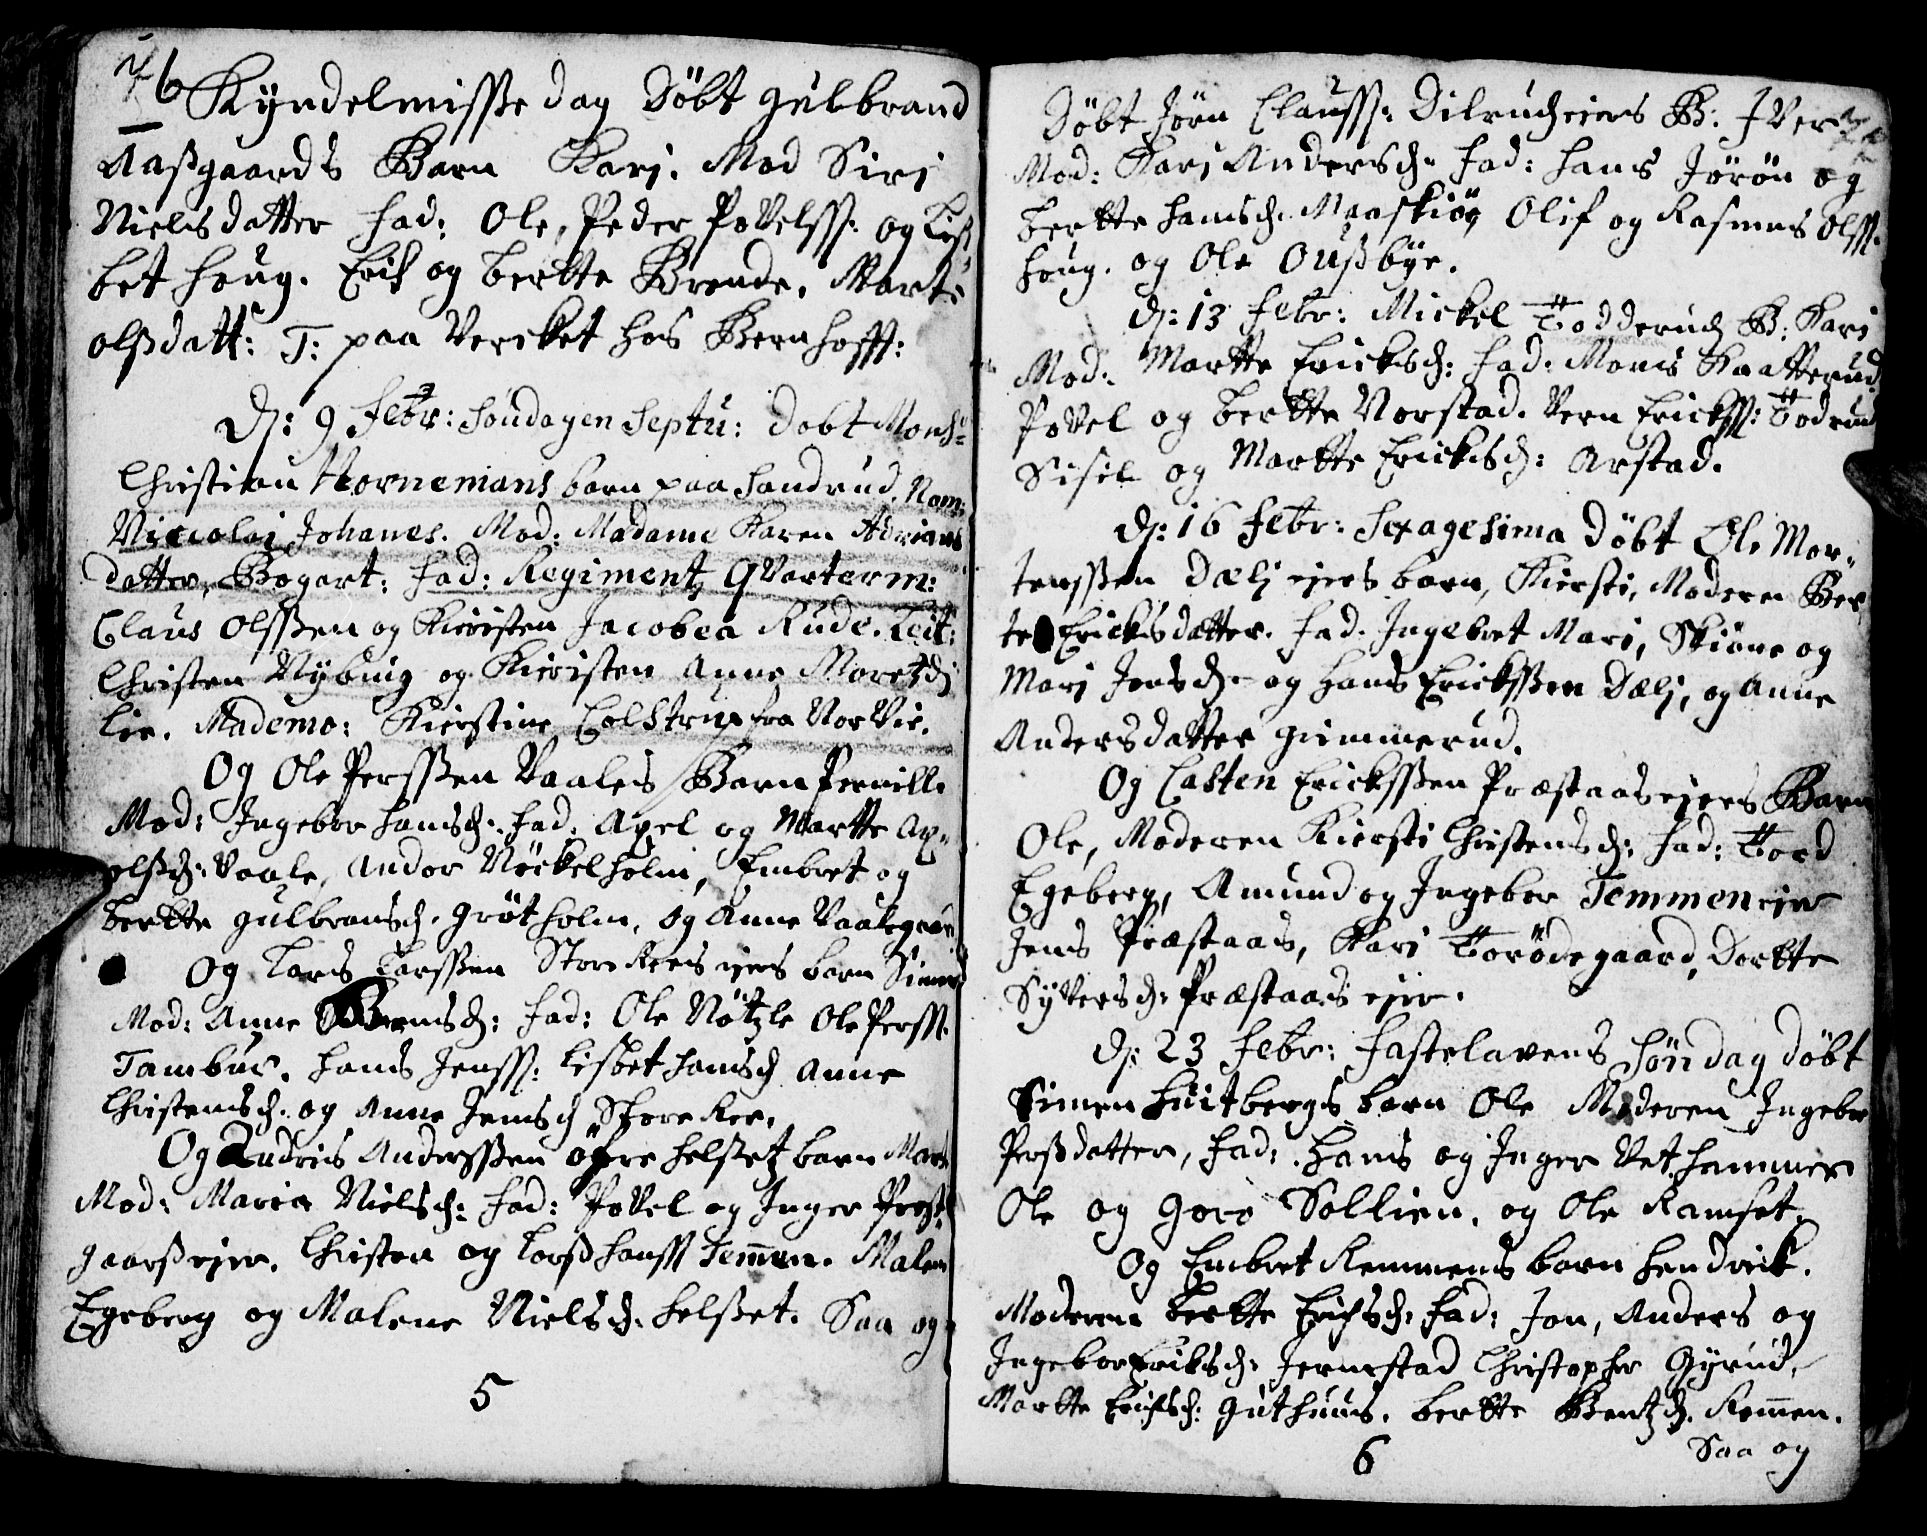 76 Kyndelmisse dag Döbt Gulbrand
Aaßgaards Barn Kari. Mod Siri
Nielsdatter Fad: Ole, Peder Povelss: og Liß
bet Houg. Erich og Bertte Brende. Marte
olßdatt: T: paa Vercket hos Bernhofft:
D: 9 Febr: Söndagen Septu: Döbt Monsr
Christian Hornemans barn paa Sandrud. Nom:
Niccolai Johanes. Mod: Madame Karen Adrians
datter, Bogart: Fad: Regimentz Qvarterm:
Claus Olsßen og Kiersten Jacobea Rude. Leit:
Christen Nybuig og Kiersten Anne Moretzd
Lie. Mademo: Kierstine Colstrup fra Norvie.
Og Ole Persßen Vaales Barn Pernille
Mod: Ingebor Hansd: Fad. Axel og Martte Ax-
elßd: Vaale, Andor Nöckelholm, Embret og
Bertte Gulbransd. Grötholm, og Anne Vaalegaar
Og Lars Larsßen Store Rees eies barn Simen
Mod: Anne Berensd: Fad: Ole Nötzle Ole Perss.
Tambur. Hans Jenss: Lisbet Hansd Anne
Christensd. og Anne Jensd Store Ree.
Og Andreis Andersßen öfre Helsetz barn Mart
Mod: Maria Nielsd: Fad: Povel og Inger Prest
gaarßeier. Christen og Larß Hanss Temmen. Malene
Egeberg og Malene Nielsd. Helßet. Saa og
5
Döbt Jörn Clausss: Dilrudeiers B: Iver
Mod: Kari Andersd: Fad: Hans Jörön og
Bertte Hansd. Maaskiög Olif og Rasmus Olss.
Houg. og Ole Oußbye.
D: 13 Febr: Mickel Todderud B: Kari
Mod: Martte Ericksd: Fad: Mons Kaatterud
Povel og Bertte Norstad. Vern Erickss: Todrud
Sisel og Martte Ericksd: Arstad.
D: 16 Febr: Sexagesima Döbt Ole Mor-
tensßen Dælj eies barn, Kiersti, Moderen Ber
te Ericksdatter. Fad. Ingebret Mari, Skiöne og
Mari Jonsd. og Hans Ericksßen Dælj, og Anne
Andersdatter Gimmerud.
Og Casten Ericksßen Præstaaseiers Barn
Ole, Moderen Kiersti Christensd: Fad: Tord
Egeberg, Amund og Ingebor Temmen eie
Jens Præstaas, Kari Torödegaard, Dortte
Syversd. Præstaas eie.
D: 23 Febr: Fastelavens Söndag döbt
Simen Huitbergs barn Ole Moderen Ingebor
Perßdatter, Fad: Hans og Inger Vethammer
Ole og Goro Sollien, og Ole Ramset.
Og Embret Remmens barn Hendrik.
Moderen Bertte Erichsd: Fad: Jon, Anders og
Ingebor Eriksd: Jernstad Christopher Gyrud,
Martte Erichsd: Guthuus. Bertte Bentzd. Remmen.
Saa og
6